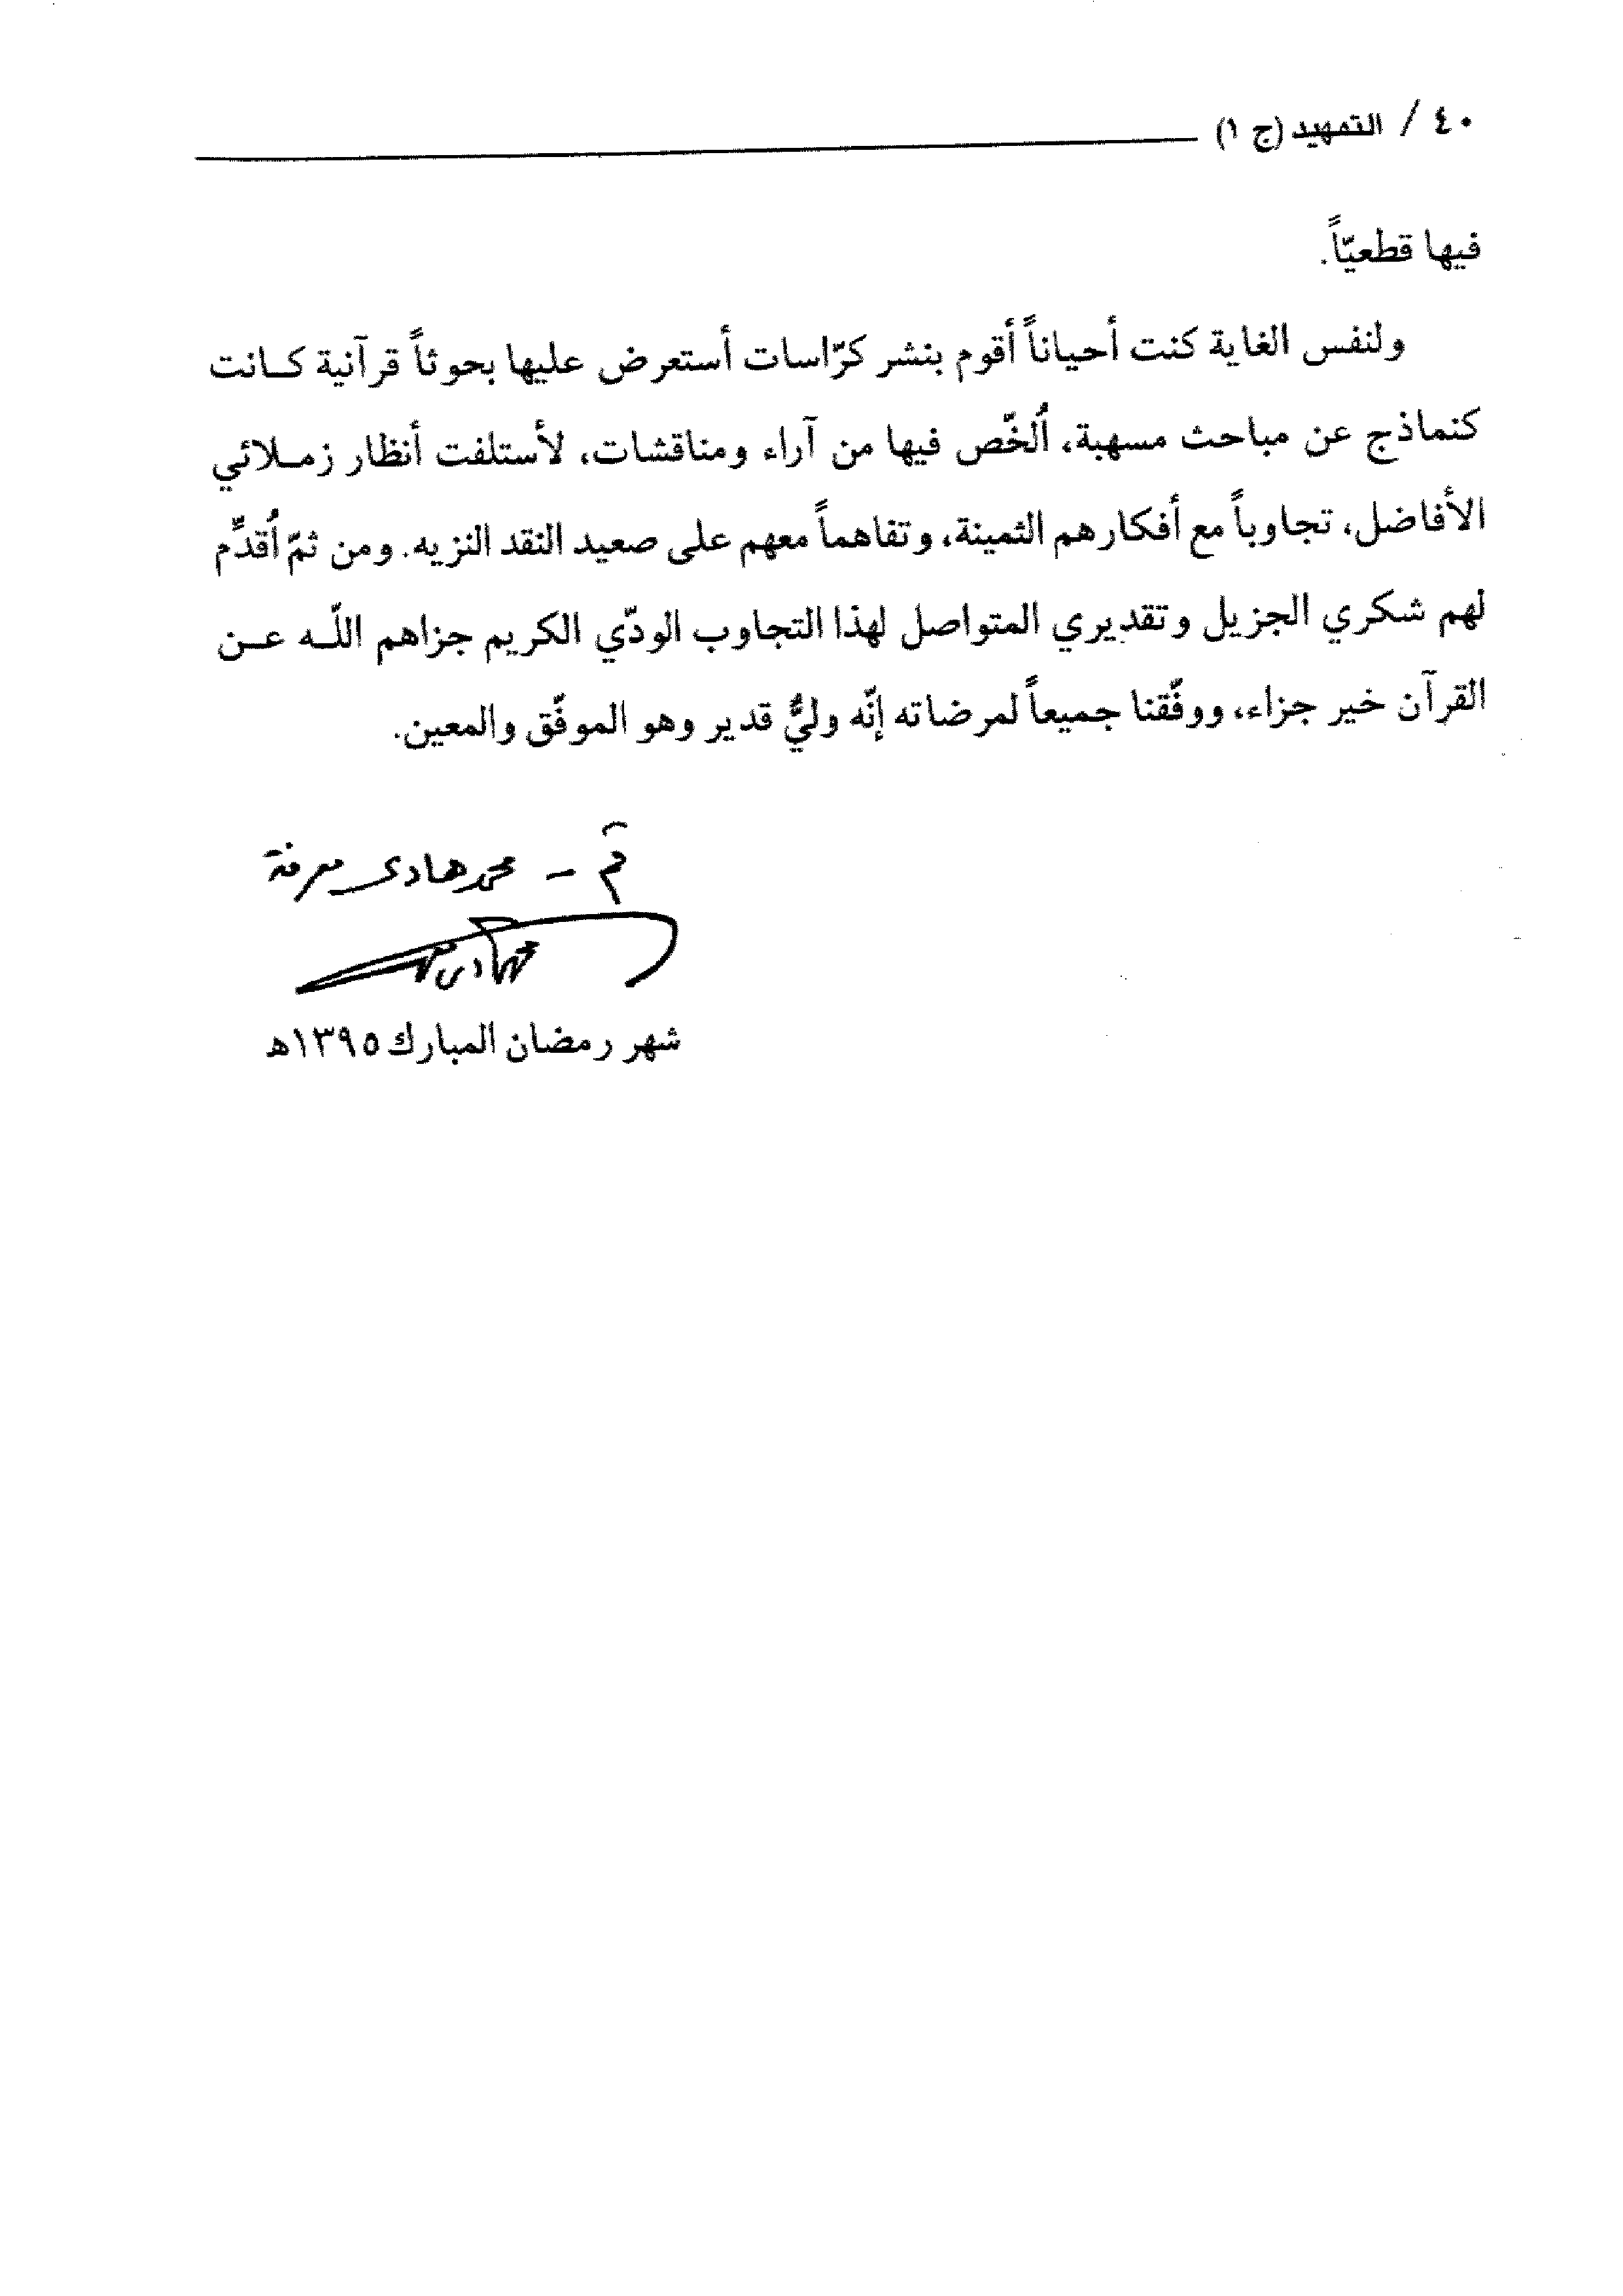 ٤٠ / التمهيد (ج ١)
فيها قطعيّاً.
ولنفس الغاية كنت أحياناً أقوم بنشر كرّاسات أستعرض عليها بحوثاً قرآنية كـانت
كنماذج عن مباحث مسهبة، اُلخّص فيها من آراء ومناقشات، لأستلفت أنظار زمـلائي
الأفاضل، تجاوباً مع أفكارهم الثمينة، وتفاهماً معهم على صعيد النقد النزيه. ومن ثمّ اُقدِّم
لهم شكري الجزيل وتقديري المتواصل لهذا التجاوب الودّي الكريم جزاهم اللّـه عـن
القرآن خير جزاء، ووفّقنا جميعاً لمرضاته إنّه وليٌّ قدير وهو الموفّق والمعين.
قم - محمد هادى معرفة
شهر رمضان المبارك ١٣٩٥هـ